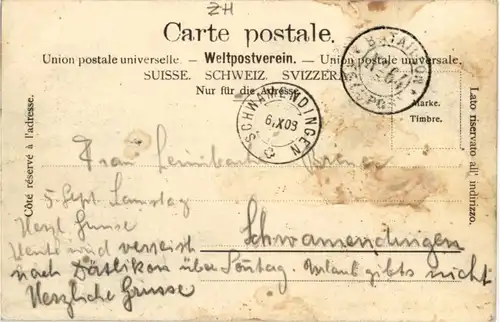 ZH
Carte postale.
Union postale universelle. – Weltpostverein. – Unione postale universale.
SUISSE. SCHWEIZ. SVIZZERA.
Nur für die Adresse.
Côté réservé à l'adresse.
Lato riservato all' indirizzo.
Marke.
Timbre.
BATAILLON
SCHWAMENDINGEN
6.IX.09
Frau
5 Sept. Samstag
Herzl Grüsse
Heute wird verreist
Schwamendingen
nach Dättlikon über Sontag. Urlaub gibts nicht
Herzliche Grüsse